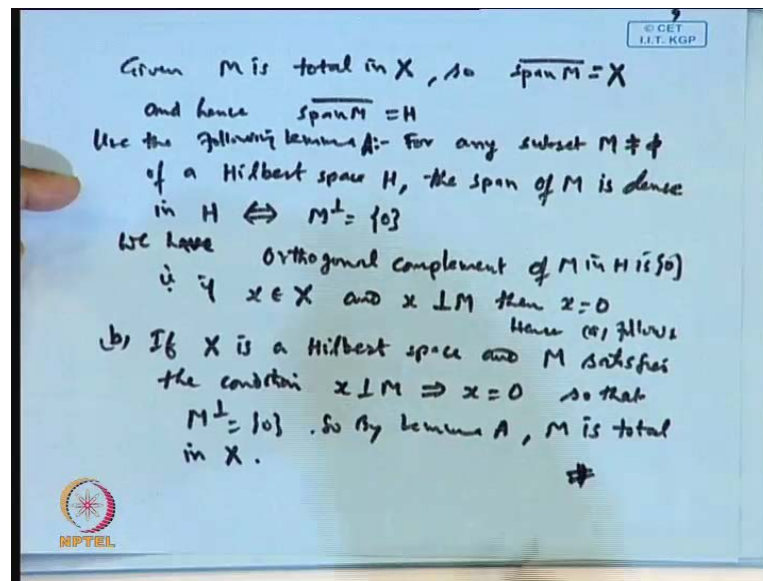 9
© CET
I.I.T. KGP
Given M is total in X, so \overline{span M} = X
and hence \overline{span M} = H
Use the following Lemma A:- For any subset M ≠ φ
of a Hilbert space H, the span of M is dense
in H ⇔ M^⊥ = {0}
We have Orthogonal complement of M in H is {0}
ie if x ∈ X and x ⊥ M then x = 0
Hence (a) follows
(b) If X is a Hilbert space and M satisfies
the condition x ⊥ M ⇒ x = 0 so that
M^⊥ = {0}. So By Lemma A, M is total
in X. #
NPTEL